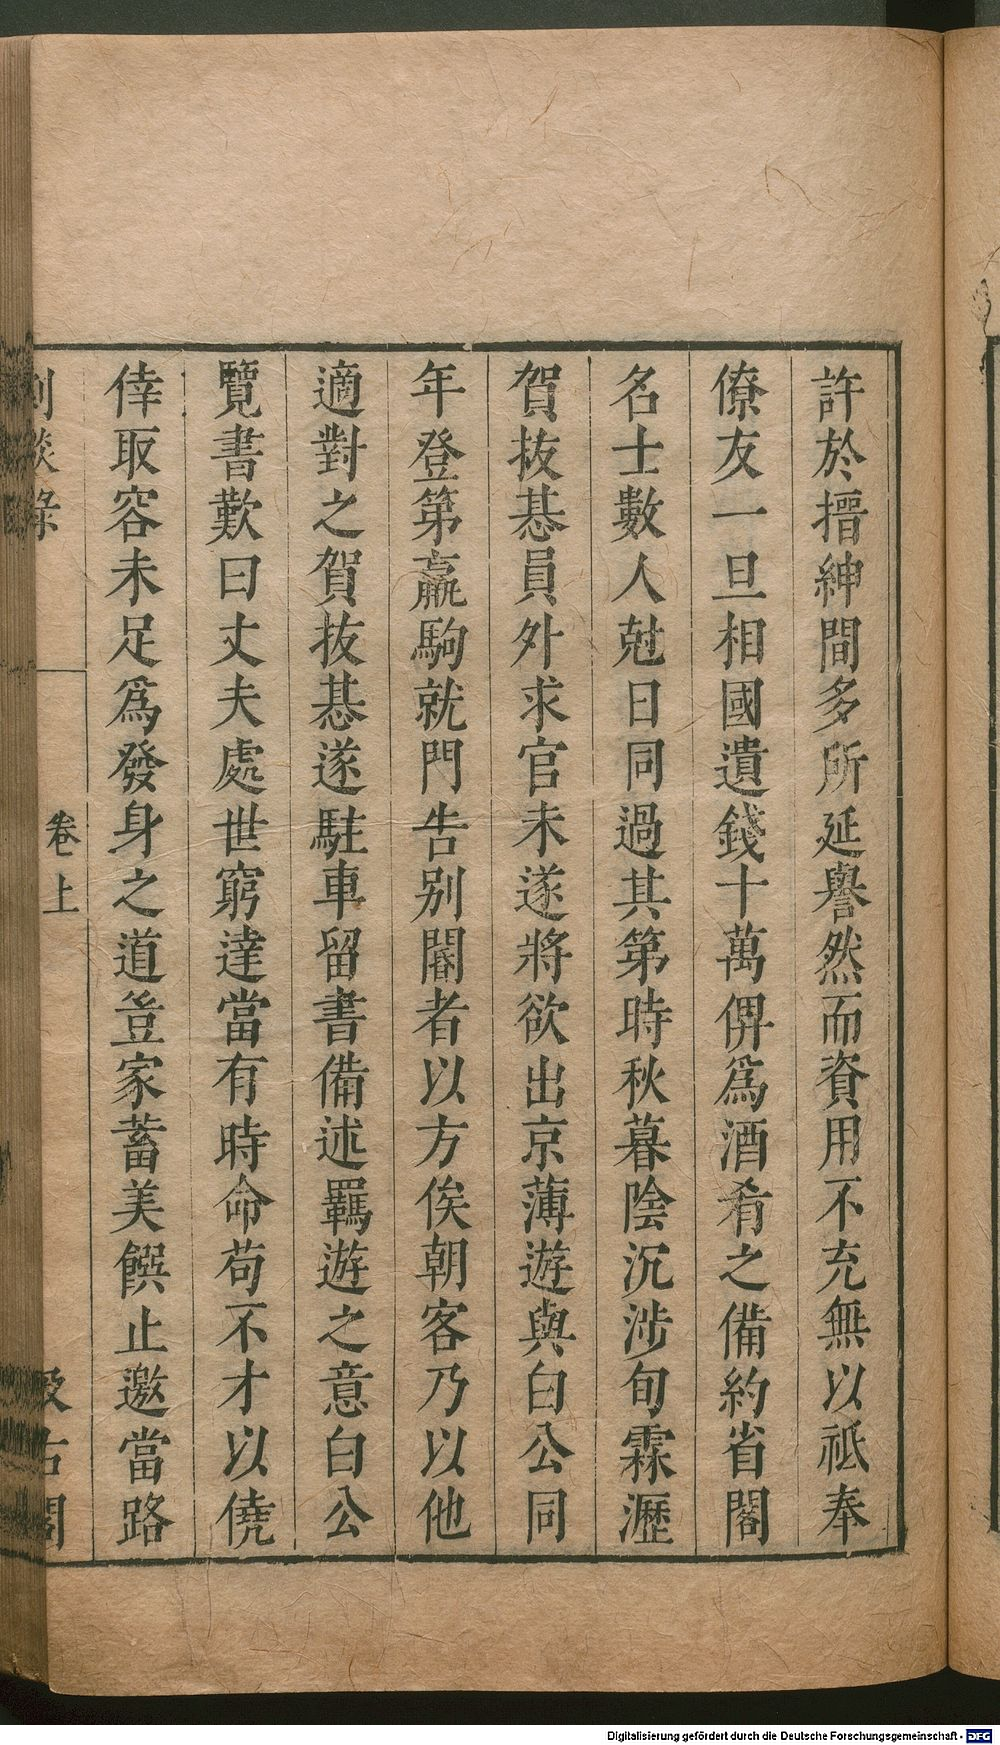 許於搢紳間多所延譽然而資用不充無以祗奉
僚友一旦相國遺錢十萬俾爲酒肴之備約省閣
名士數人尅日同過其第時秋暮陰沉涉旬霖瀝
賀拔惎員外求官未遂將欲出京薄遊與白公同
年登第羸駒就門告别閽者以方俟朝客乃以他
適對之賀拔惎遂駐車留書備述羈遊之意白公
覽書歎曰丈夫處世窮達當有時命苟不才以僥
倖取容未足爲發身之道豈家蓄美饌止邀當路
劇談錄
卷上
汲古閣
Digitalisierung gefördert durch die Deutsche Forschungsgemeinschaft - DFG